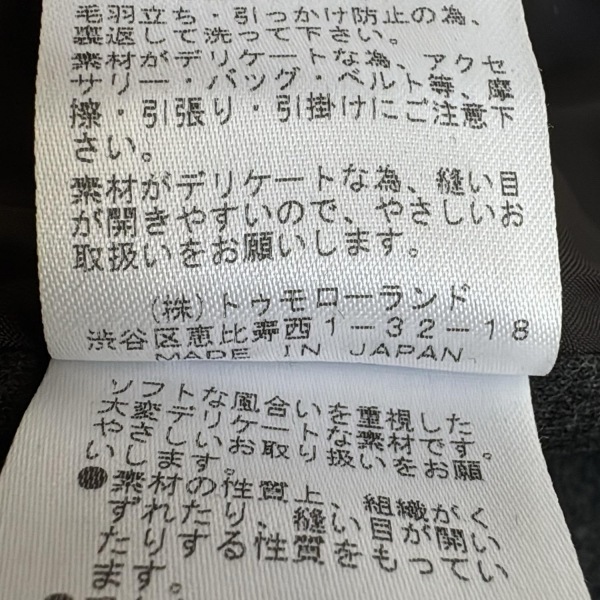 毛羽立ち・引っかけ防止の為、
裏返して洗って下さい。
素材がデリケートな為、アクセ
サリー・バッグ・ベルト等、摩
擦・引張り・引掛けにご注意下
さい。
素材がデリケートな為、縫い目
が開きやすいので、やさしいお
取扱いをお願いします。
(株)トゥモローランド
渋谷区恵比寿西1-32-18
MADE IN JAPAN
ソフトな風合いを重視した
大変デリケートな素材です。
やさしいお取り扱いをお願
いします。
●素材の性質上、組織がく
ずれたり、縫い目が開い
たりする性質をもってい
ます。